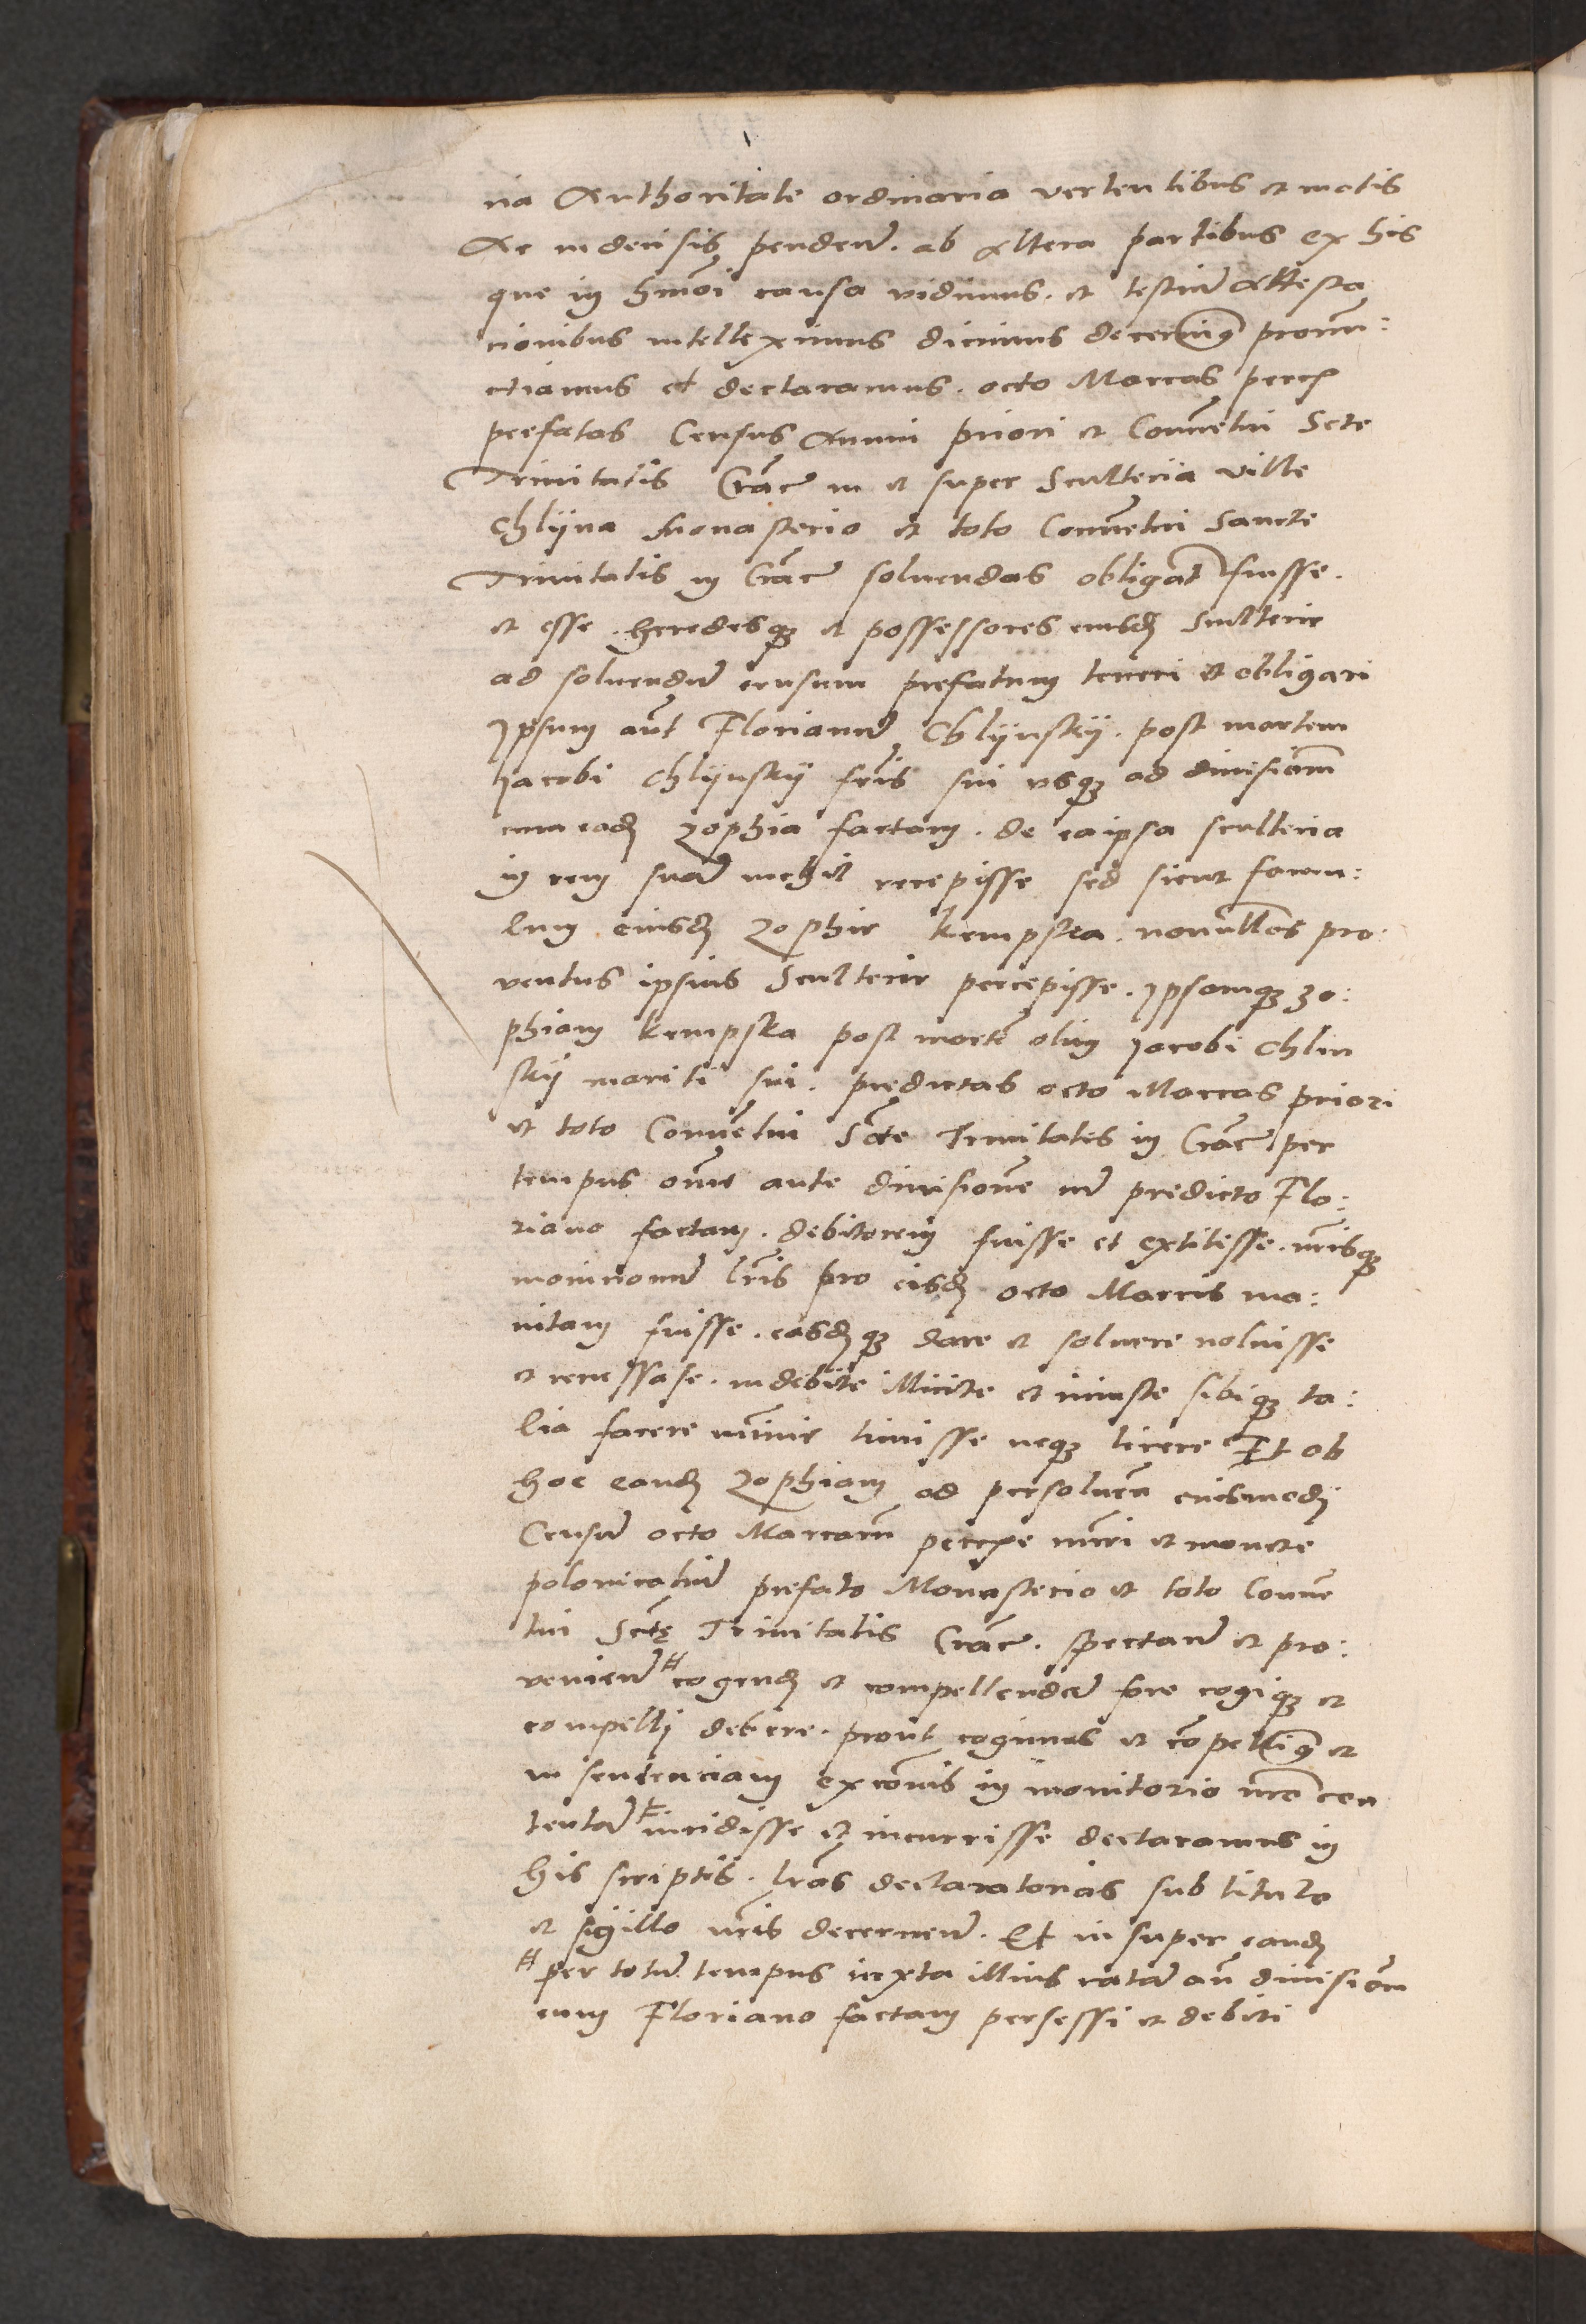 ria Authoritate ordinaria vertentibus et motis
Ac indecisis penden̄. ab altera partibus ex his
que in hmōi causa vidimus. et testiū attesta
cionibus intelleximus dicimus decernimꝯ pronun:
ctiamus et declaramus. octo Marcas pecᷓ
prefatas Census Annui priori et Conuētui Scte
Trinitatis Crać in et super Scultecia ville
Chlyna Monasterio et toto Conuētui Sancte
Trinitatis in Crać soluendas obligat̄ fuisse.
et esse. heredesqꝫ et possessores eiusdē Sculteciæ
ad soluendū censum prefatum teneri et obligari
Ipsum aūt Florianū Chlynskÿ. post mortem
Jacobi Chlÿnskÿ fr̄is sui vsqꝫ ad diuisionē
cum eadē Zophia factam. de ea ipsa scultecia
in rem suā nichil recepisse sed sicut famu:
lum eiusdē Zophiæ Kempska. nonnullos pro
ventus ipsius Sculteciæ percepisse. Ipsamqꝫ Zo:
phiam Kempska post mortē olim Jacobi Chlin
skÿ mariti sui. predictas octo Marcas priori
et toto Conuētui Scte Trinitatis in Crać per
tempus om̄e ante diuisionē cū predicto Flo:
riano factam. debitorem fuisse et extitisse. nr̄isqꝫ
monicionū lr̄is pro eisdē octo Marcis mo:
nitam fuisse. easdēqꝫ dare et soluere noluisse
et recussasse. indebite illicite et iniuste sibiqꝫ ta:
lia facere minime licuisse neqꝫ licere Et ob
hoc eandē Zophiam ad persoluen̄ eiusmodj
Censū octo Marcarū pecuniæ nu̅ri et monete
polonicaliū prefato Monasterio et toto Conue
tui Sctę Trinitatis Crać. spectan̄ et pro:
venien̄ # cogendā et compellendā fore cogiqꝫ et
compelli debere. prout cogimus et cōpellimꝯ et
in sentenciam excōnis in monitorio nr̄o con
tentā # incidisse et incurrisse declaramus in
his scriptis. lr̄as declaratorias sub titulo
et sigillo nr̄is decernen̄. Et insuper eandē
# per totū tempus iuxta illius ratā an̄ diuisionē
cum Floriano factam persessi et debiti